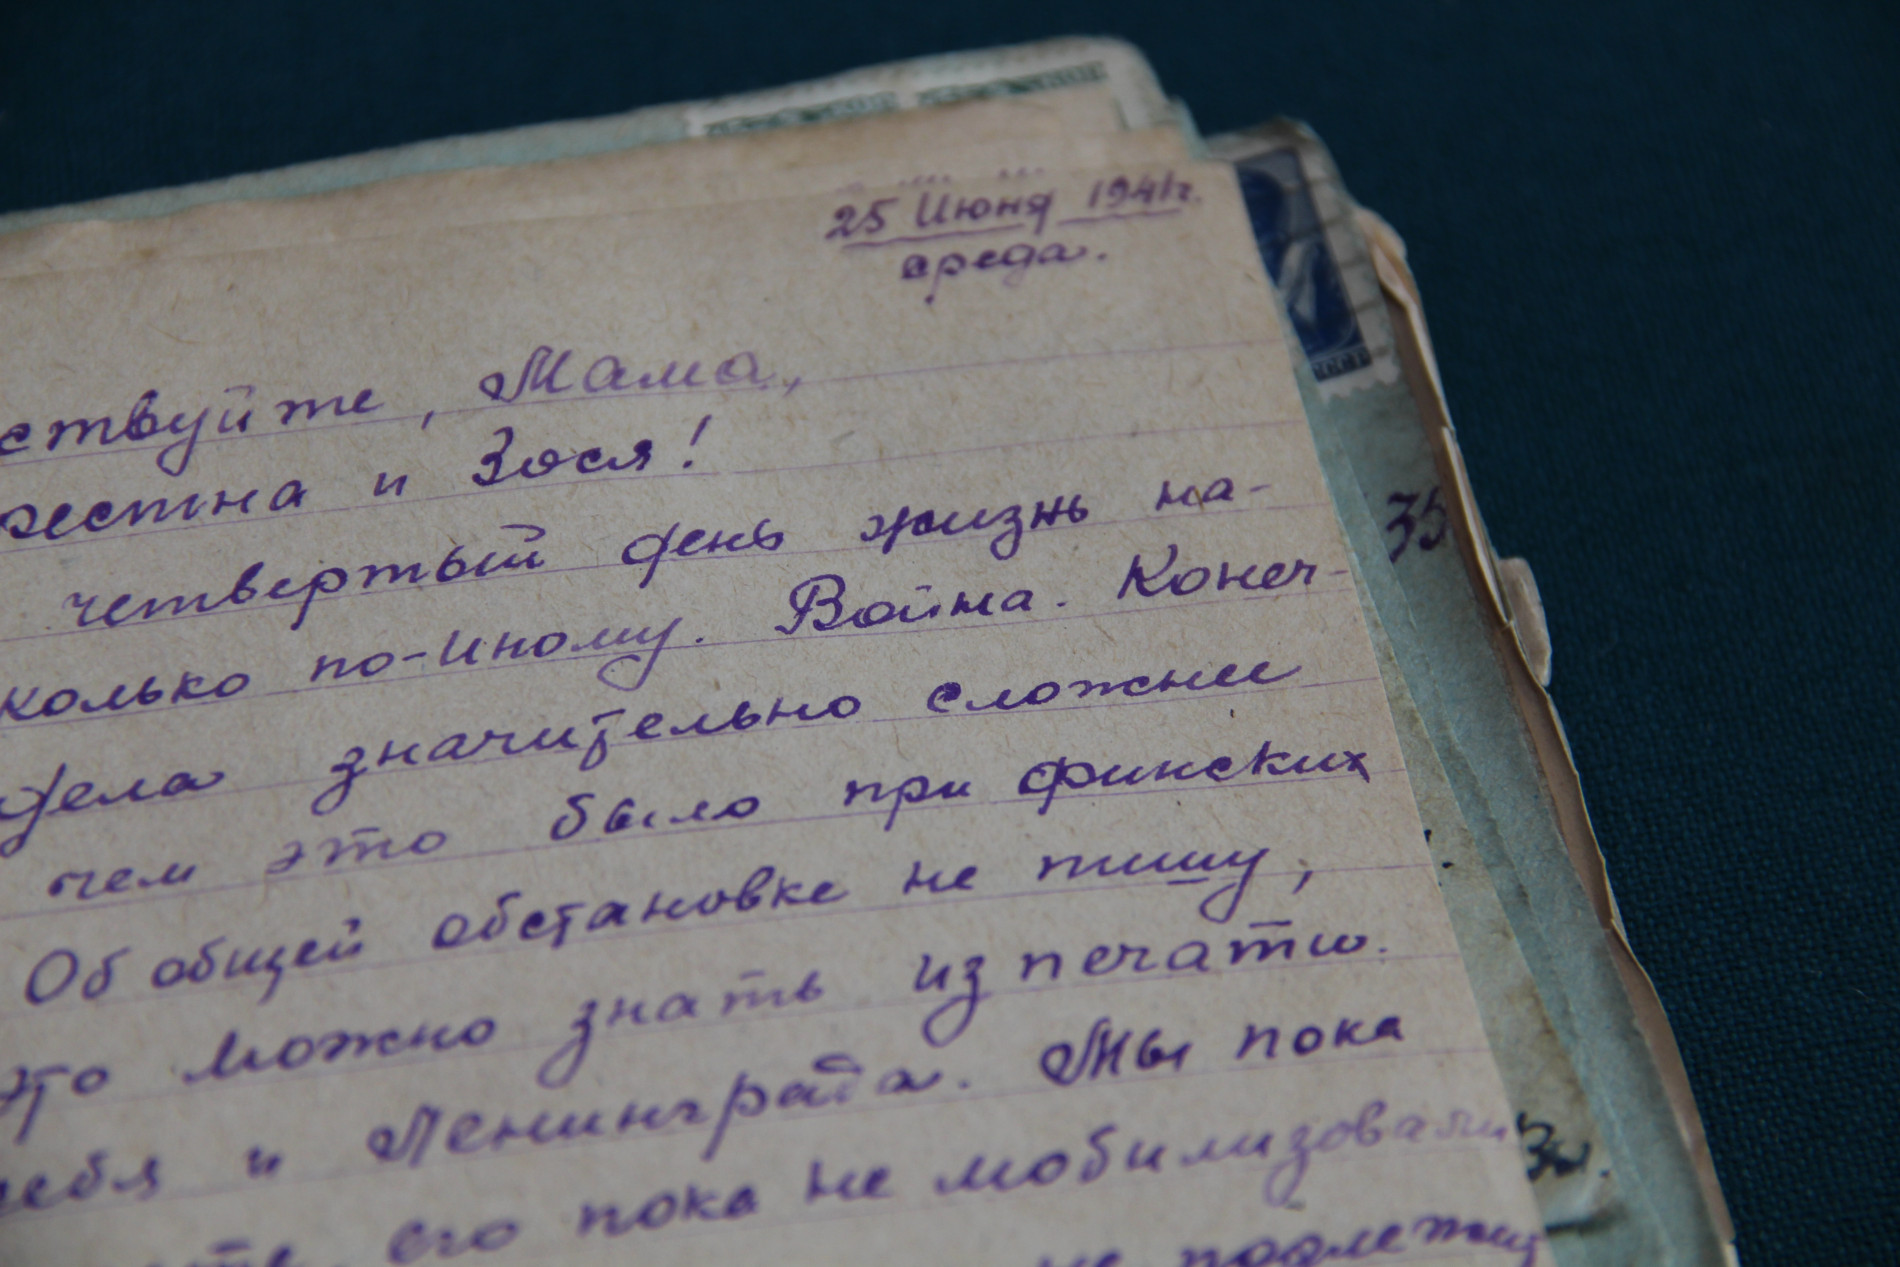 25 Июня 1941г.
среда.
ствуйте, Мама,
и Зося!
четвертый день жизнь на-
колько по-иному. Война. Конеч-
дела значительно сложнее
чем это было при финских
Об общей обстановке не пишу,
это можно знать из печати.
себя и Ленинграда. Мы пока
его пока не мобилизовали
не подлежит
35